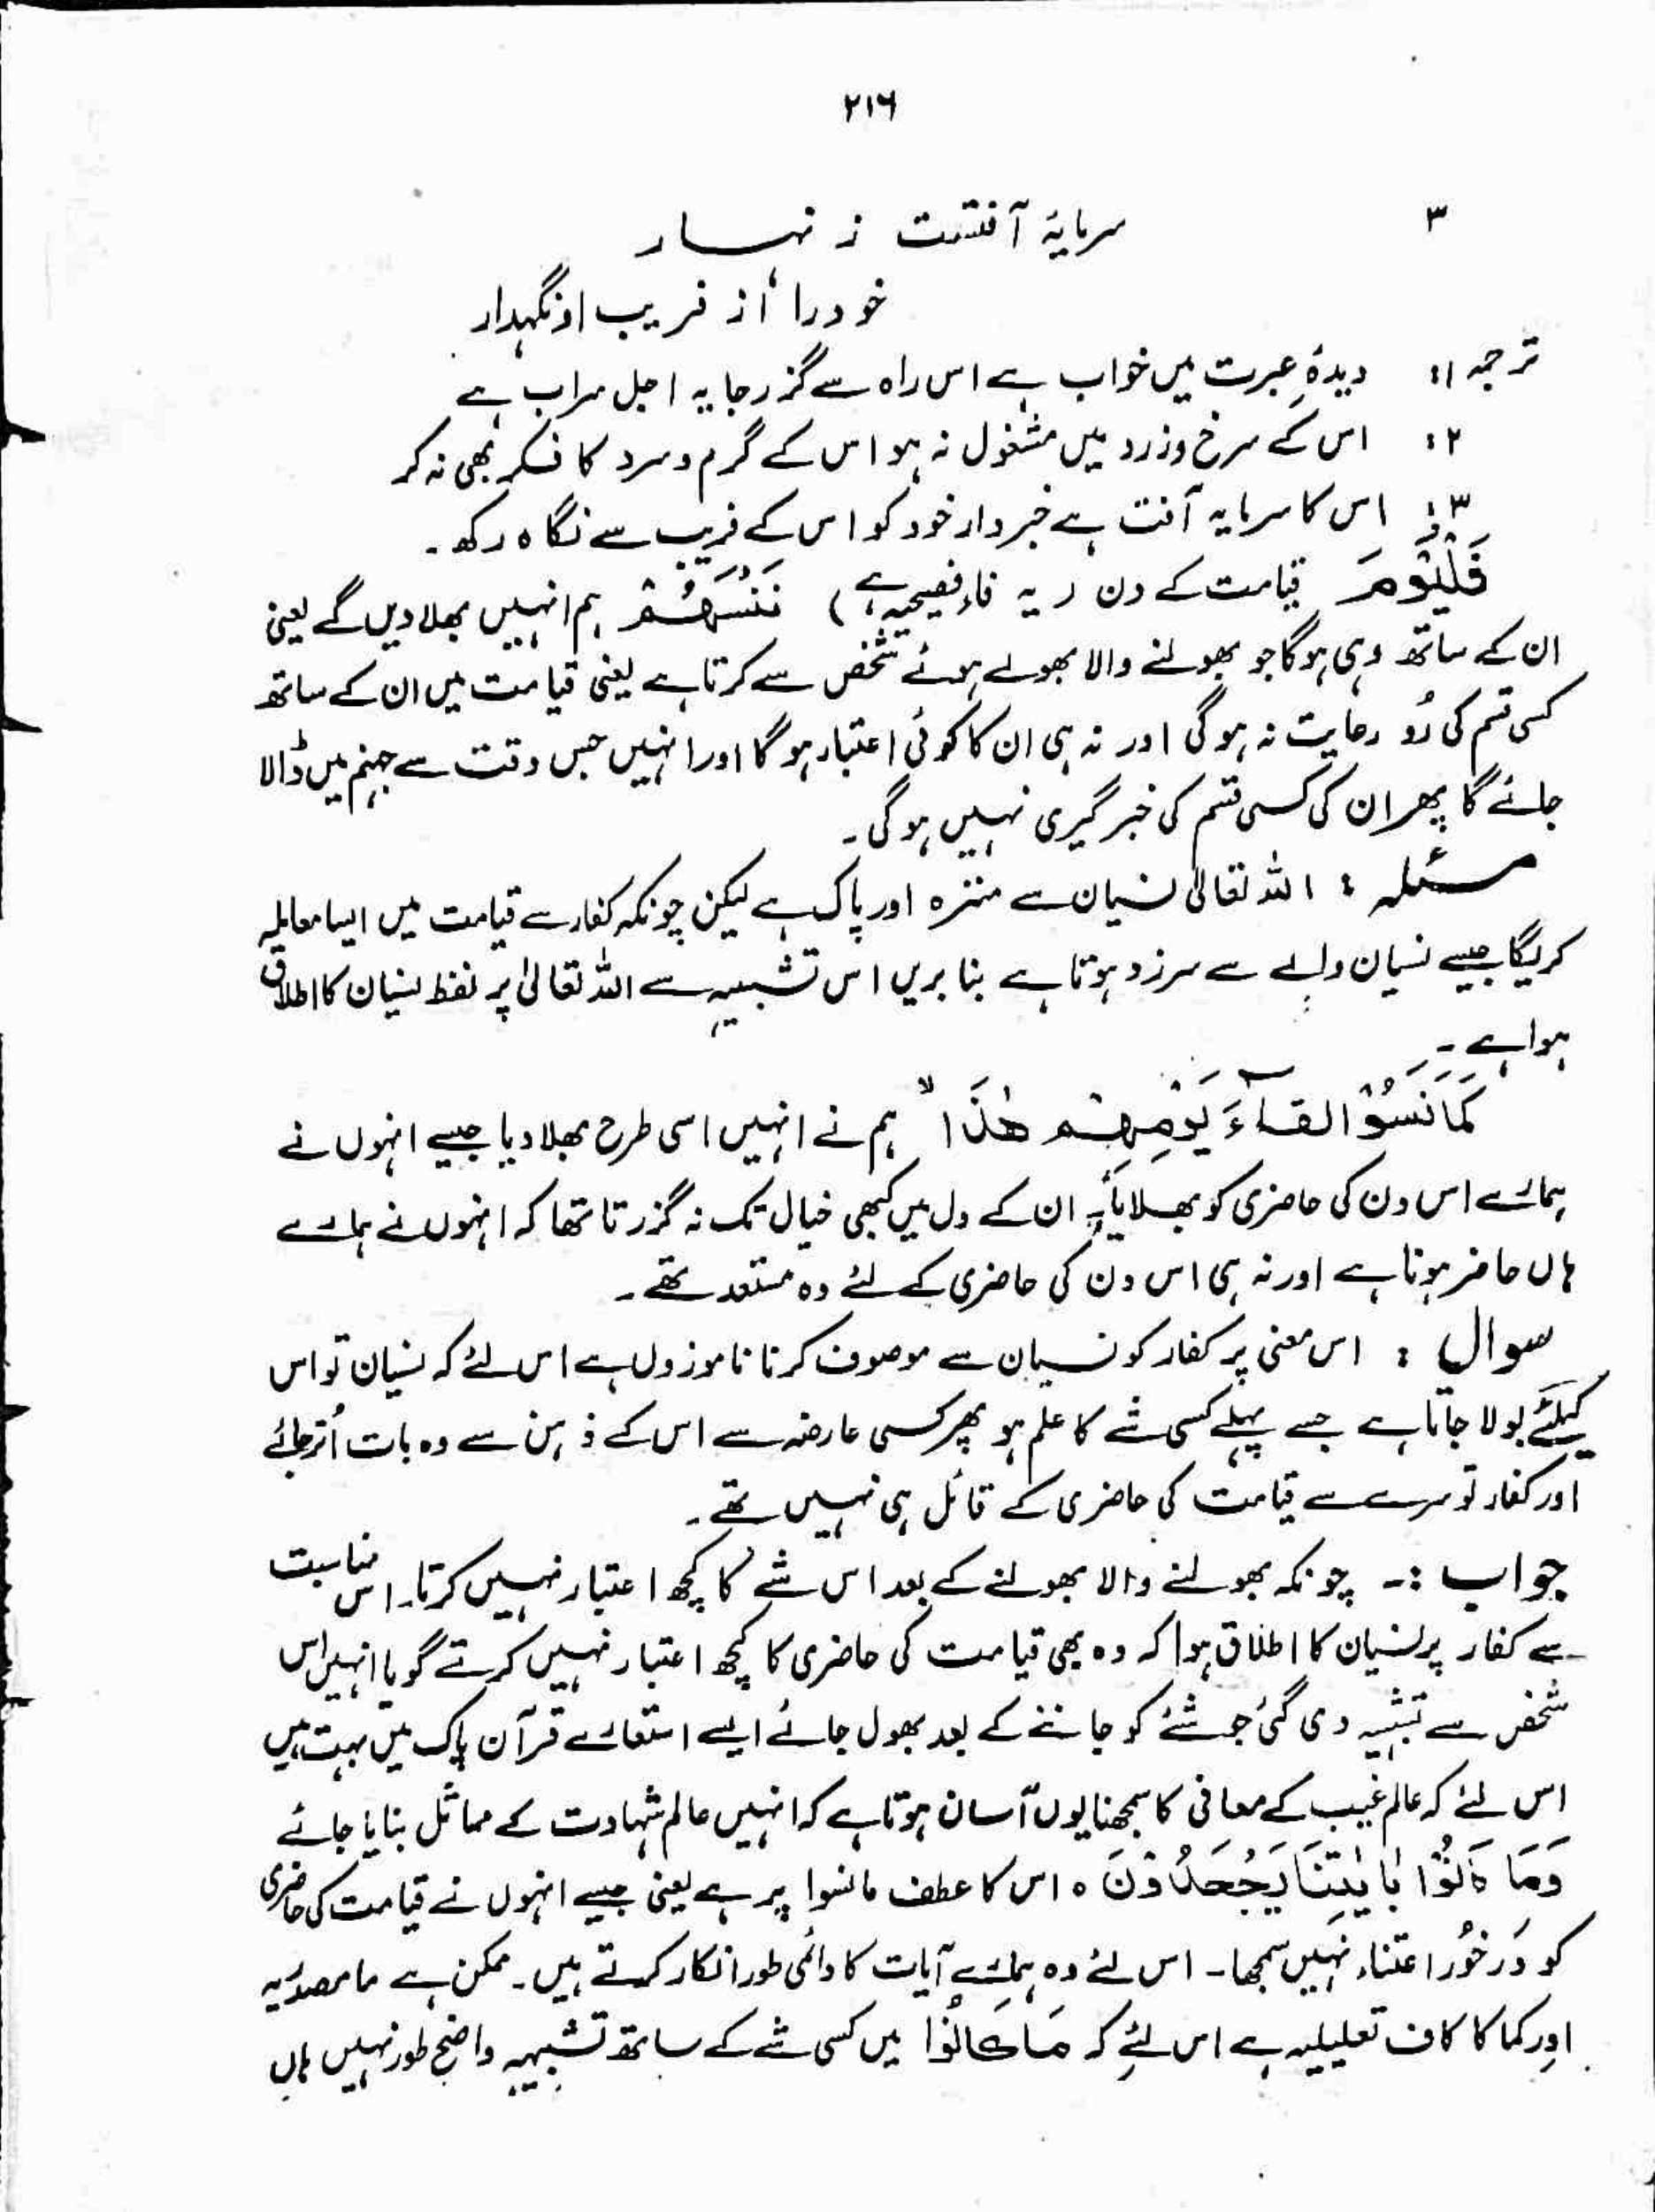 ۲۱۶
۳ سرمایۂ آفتست ز نہار
خود را از فریب او نگہدار
ترجمہ ۱: دیدۂ عبرت میں خواب ہے اس راہ سے گزر جا یہ اجل سراب ہے
۲: اس کے سرخ وزرد میں مشغول نہ ہو اس کے گرم و سرد کا فکر بھی نہ کر
۳: اس کا سرمایہ آفت ہے خبردار خود کو اس کے فریب سے نگاہ رکھ۔
فَلْيَوْمَ قیامت کے دن (یہ فاء فصیحیہ ہے) نَنْسٰهُمْ ہم انہیں بھلا دیں گے یعنی
ان کے ساتھ وہی ہوگا جو بھولنے والا بھولے ہوئے شخص سے کرتا ہے یعنی قیامت میں ان کے ساتھ
کسی قسم کی رُو رعایت نہ ہوگی اور نہ ہی ان کا کوئی اعتبار ہوگا اور انہیں جس وقت سے جہنم میں ڈالا
جائے گا پھر ان کی کسی قسم کی خبرگیری نہیں ہوگی۔
مسئلہ : اللہ تعالیٰ نسیان سے منزہ اور پاک ہے لیکن چونکہ کفار سے قیامت میں ایسا معاملہ
کریگا جیسے نسیان والے سے سرزد ہوتا ہے بنا بریں اس تشبیہ سے اللہ تعالیٰ پر لفظ نسیان کا اطلاق
ہوا ہے۔
كَمَا نَسُوْا لِقَآءَ يَوْمِهِمْ هٰذَا ۙ ہم نے انہیں اسی طرح بھلا دیا جیسے انہوں نے
ہمارے اس دن کی حاضری کو بھلایا۔ ان کے دل میں کبھی خیال تک نہ گزرتا تھا کہ انہوں نے ہمارے
ہاں حاضر ہونا ہے اور نہ ہی اس دن کی حاضری کے لئے وہ مستعد تھے۔
سوال : اس معنی پر کفار کو نسیان سے موصوف کرنا ناموزوں ہے اس لئے کہ نسیان تو اس
کیلئے بولا جاتا ہے جسے پہلے کسی شے کا علم ہو پھر کسی عارضہ سے اس کے ذہن سے وہ بات اُتر جائے
اور کفار تو سرے سے قیامت کی حاضری کے قائل ہی نہیں تھے۔
جواب :۔ چونکہ بھولنے والا بھولنے کے بعد اس شے کا کچھ اعتبار نہیں کرتا۔ اس مناسبت
سے کفار پر نسیان کا اطلاق ہوا کہ وہ بھی قیامت کی حاضری کا کچھ اعتبار نہیں کرتے گویا انہیں اس
شخص سے تشبیہ دی گئی جو شئے کو جاننے کے بعد بھول جائے ایسے استعارے قرآن پاک میں بہت ہیں
اس لئے کہ عالم غیب کے معانی کا سمجھنا یوں آسان ہوتا ہے کہ انہیں عالم شہادت کے مماثل بنایا جائے
وَمَا كَانُوْا بِاٰيٰتِنَا يَجْحَدُوْنَ ہ اس کا عطف مانسوا پر ہے یعنی جیسے انہوں نے قیامت کی حاضری
کو دَر خُور اعتناء نہیں سمجھا۔ اس لئے وہ ہمارے آیات کا دائمی طور انکار کرتے ہیں۔ ممکن ہے ما مصدریہ
اور کما کا کاف تعلیلیہ ہے اس لئے کہ مَا كَانُوْا میں کسی شے کے ساتھ تشبیہ واضح طور نہیں ہاں